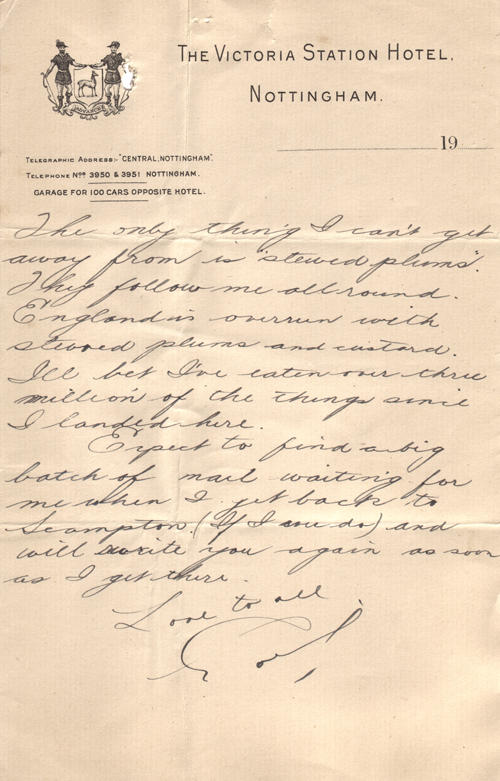 The Victoria Station Hotel,
Nottingham.
19
ADVANCE
Telegraphic Address:- "CENTRAL, NOTTINGHAM".
Telephone Nos 3950 & 3951 NOTTINGHAM.
GARAGE FOR 100 CARS OPPOSITE HOTEL.
The only thing I can't get
away from is "stewed plums".
They follow me all round.
England is overrun with
stewed plums and custard.
I'll bet I've eaten over three
million of the things since
I landed here.
Expect to find a big
batch of mail waiting for
me when I get back to
Scampton. (If I ever do) and
will write you again as soon
as I get there.
Love to all